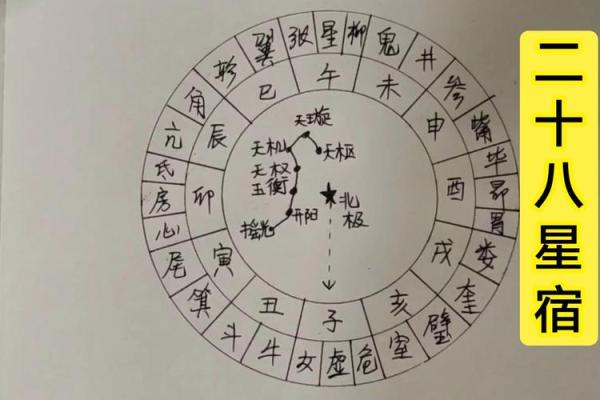 二十八星宿
角
轸
翼
张
星
柳
鬼
井
参
觜
毕
昴
胃
娄
奎
壁
室
危
虚
女
牛
斗
箕
尾
心
房
氐
亢
午
未
申
酉
戌
亥
子
丑
寅
卯
辰
巳
天璇
天枢
天机
天权
玉衡
开阳
摇光
北
极